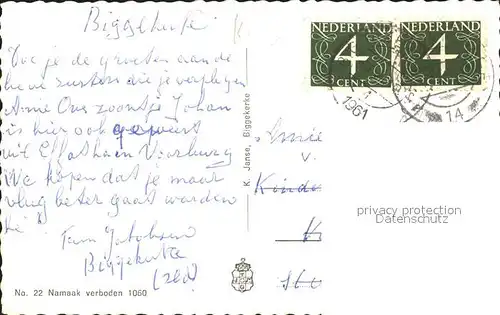 Biggekerke
Doe je de groeten aan de
lieve zusters die je verplegen
Annie Ons zoontje Johan
is hier ook geweest
uit Voorburg
We hopen dat je maar
vlug beter gaat worden
hé
Fam
Biggekerke
(Zld)
No. 22 Namaak verboden 1060
K. Janse, Biggekerke
NEDERLAND
4
CENT
NEDERLAND
4
CENT
1961
14
v.
Kinde
K
privacy protection
Datenschutz